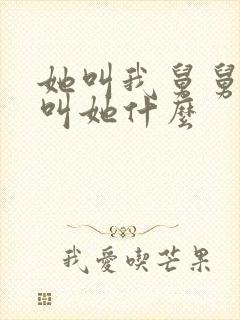 她叫我舅舅
叫她什麼
我愛喫芒果